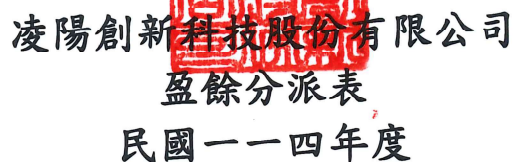 凌陽創新科技股份有限公司
盈餘分派表
民國一一四年度